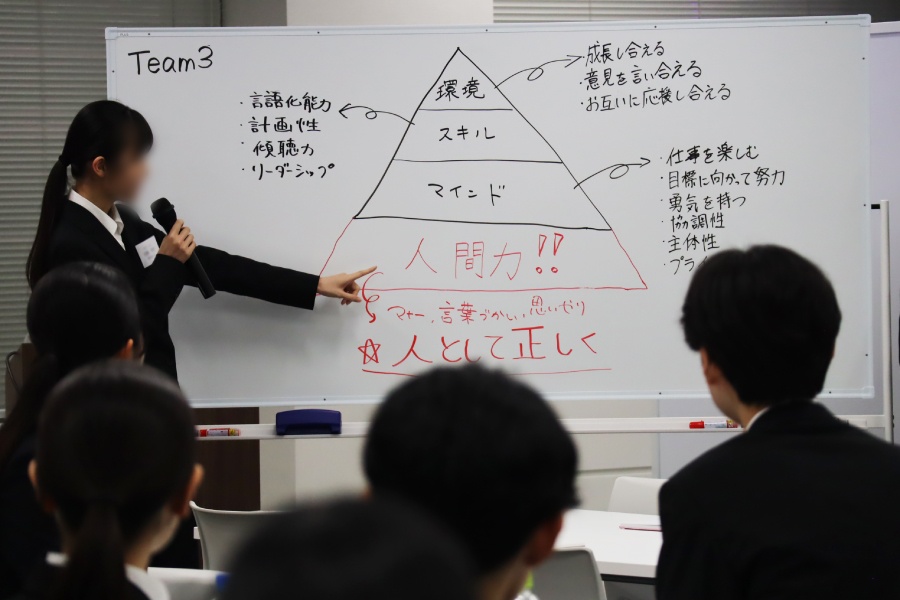 Team3
環境
スキル
マインド
人間力!!
・言語化能力
・計画性
・傾聴力
・リーダーシップ
・成長し合える
・意見を言い合える
・お互いに応援し合える
・仕事を楽しむ
・目標に向かって努力
・勇気を持つ
・協調性
・主体性
・プライ
マナー、言葉づかい、思いやり
☆人として正しく